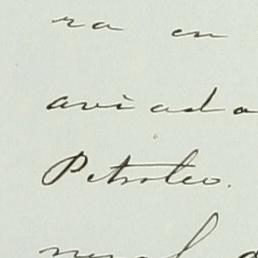 ra en
aviada
Petroleo.